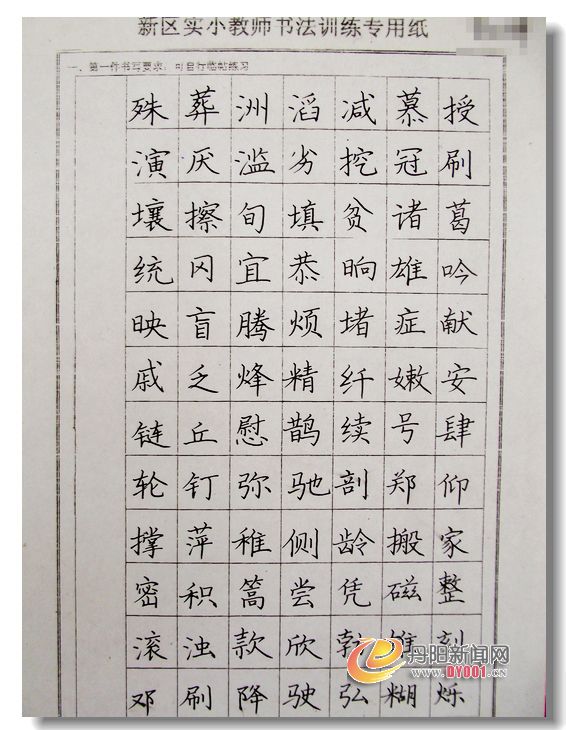 新区实小教师书法训练专用纸
一、第一件书写要求：可自行临帖练习
殊葬洲滔减慕授
演厌滥劣挖冠刷
壤擦旬填贫诸葛
统冈宜恭晌雄吟
映盲腾烦堵症献
戚乏烽精纤嫩安
链丘慰鹊续号肆
轮钉弥驰剖郑仰
撑萍稚侧龄搬家
密积篙尝凭磁整
滚浊款欣勃雄刻
邓刷降驶弘糊烁
丹阳新闻网
WWW.DY001.CN